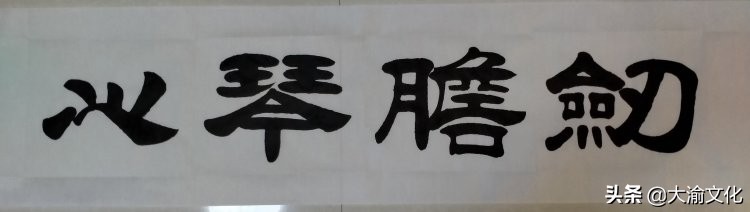 劒膽琴心
头条 @大渝文化